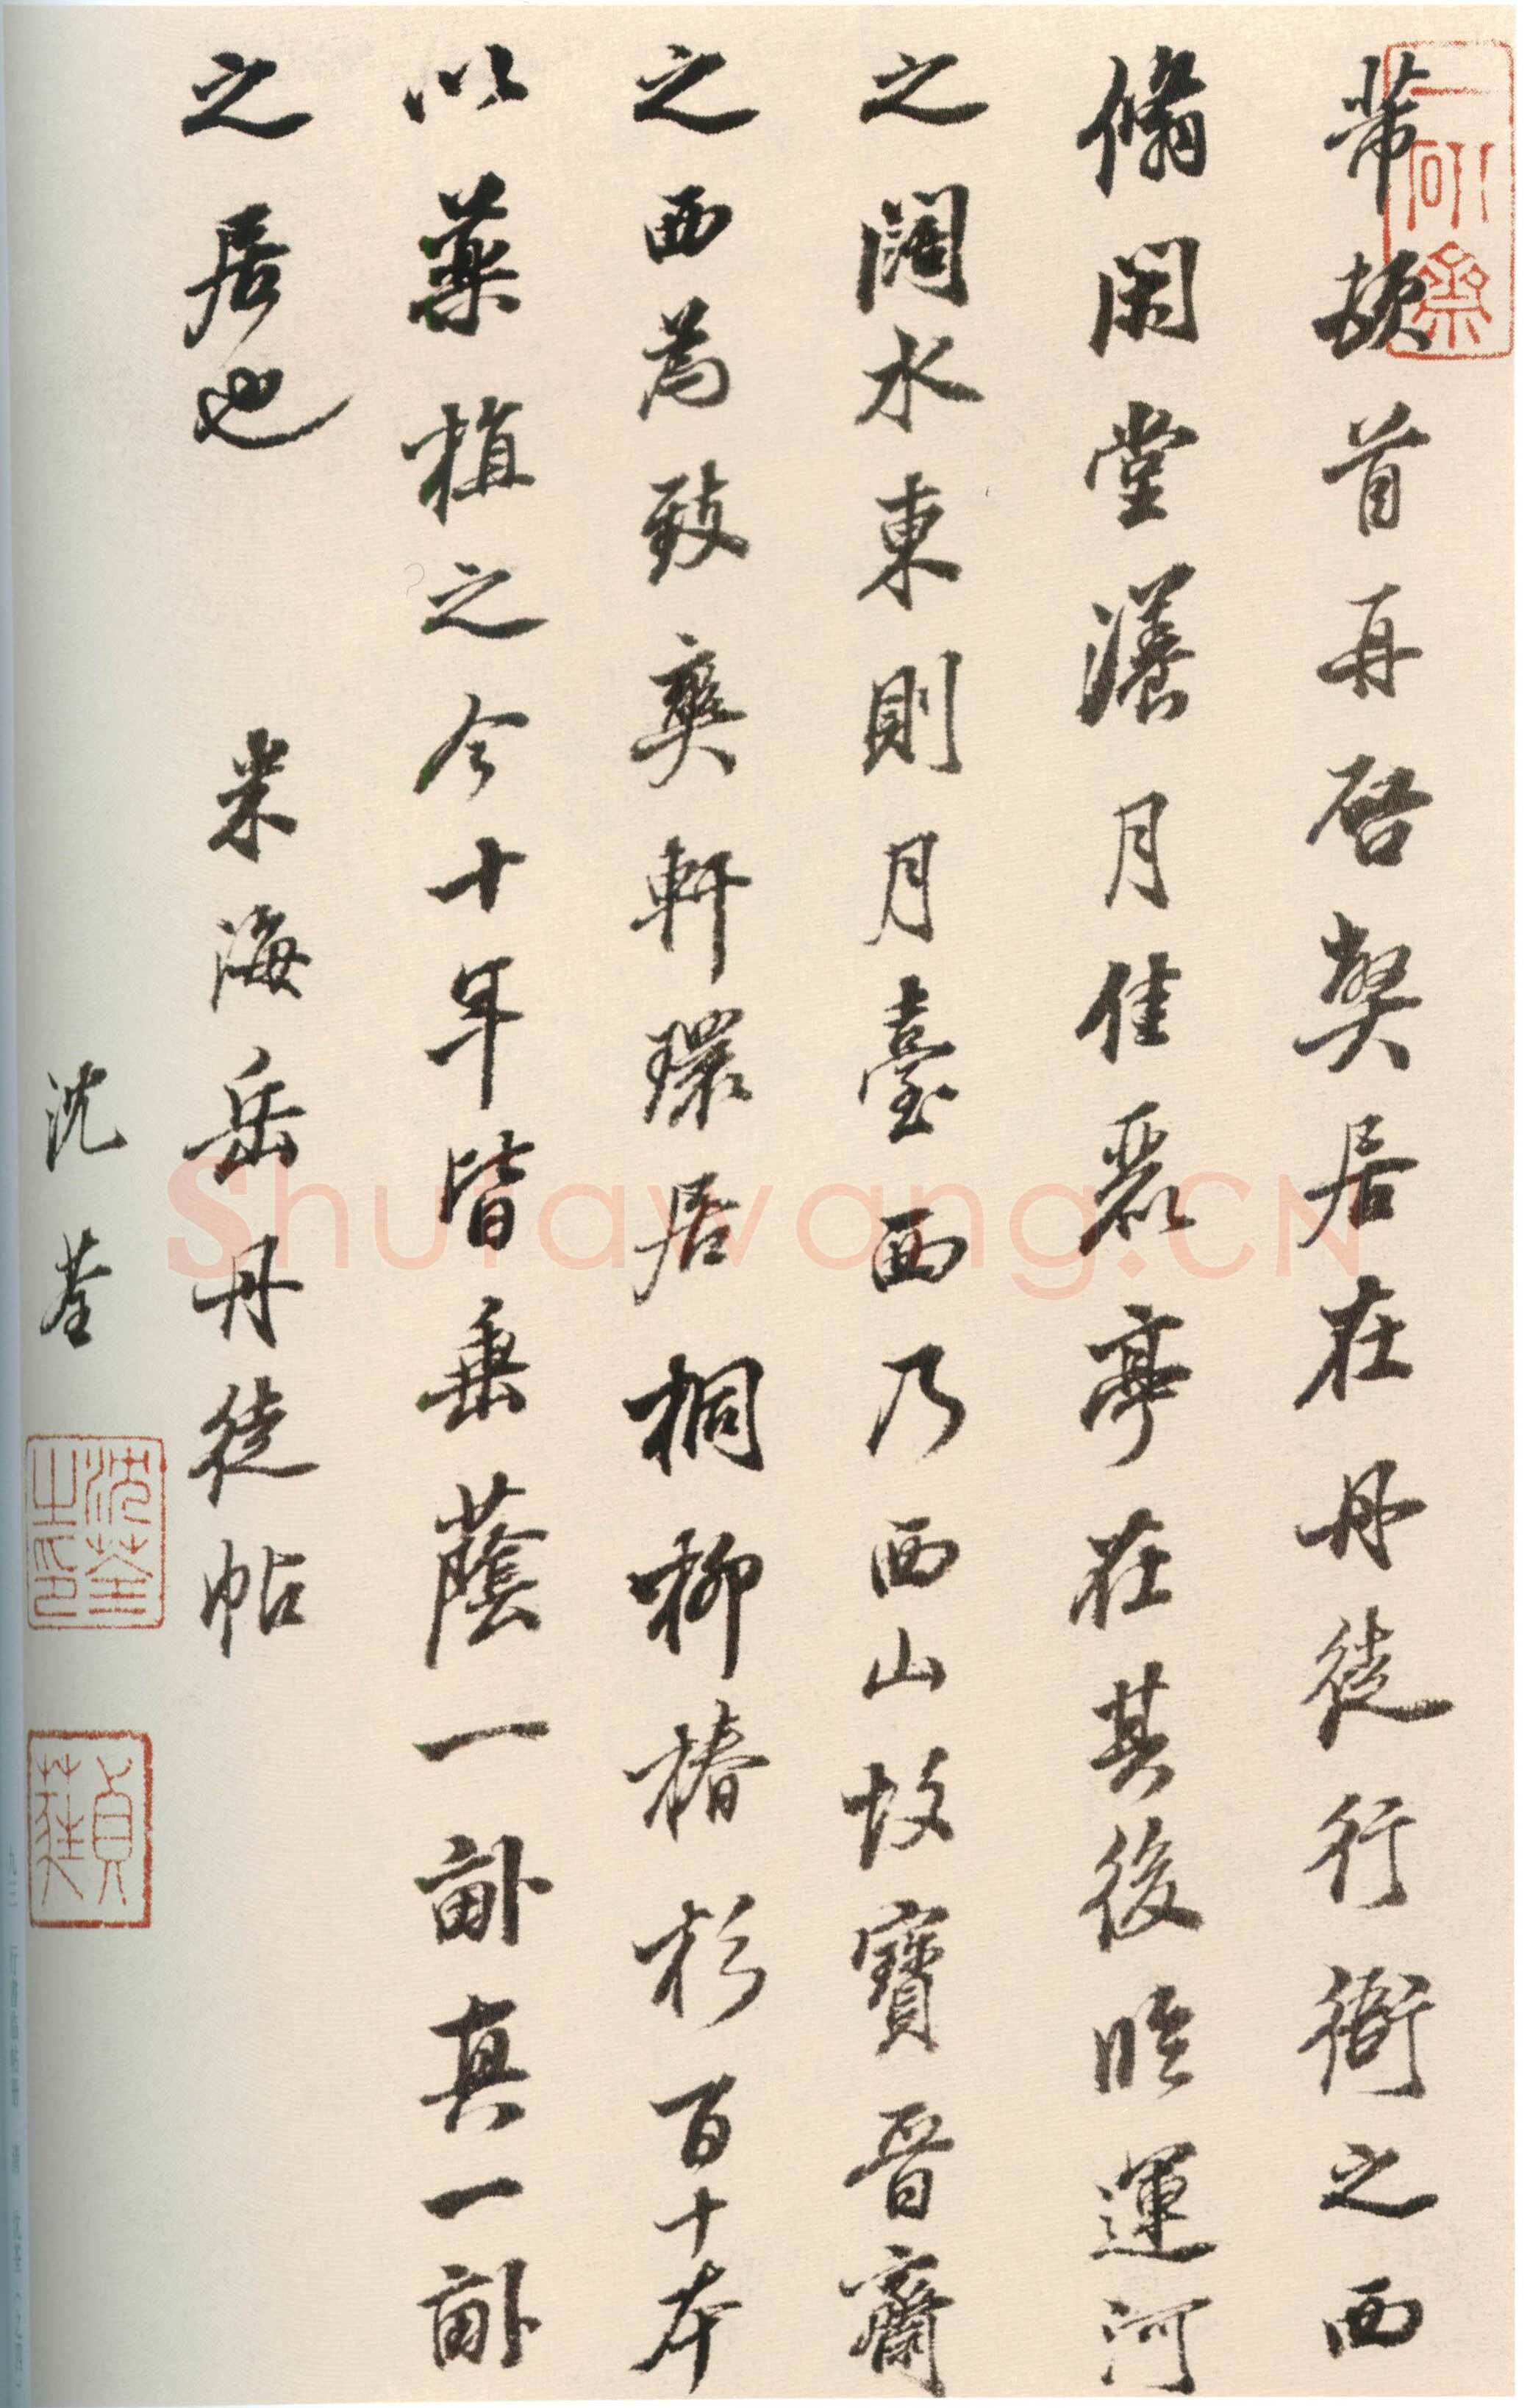 芾頓首再啓弊居在丹徒行衙之西
翛閑堂漾月佳麗亭在其後臨運河
之闊水東則月臺西乃西山故寶晉齋
之西爲致爽軒環居桐柳椿杉百十本
以藥植之今十年皆垂蔭一畝真一畝
之居也
米海岳丹徒帖
沈荃
一研齋
沈荃之印
Shufawang.CN